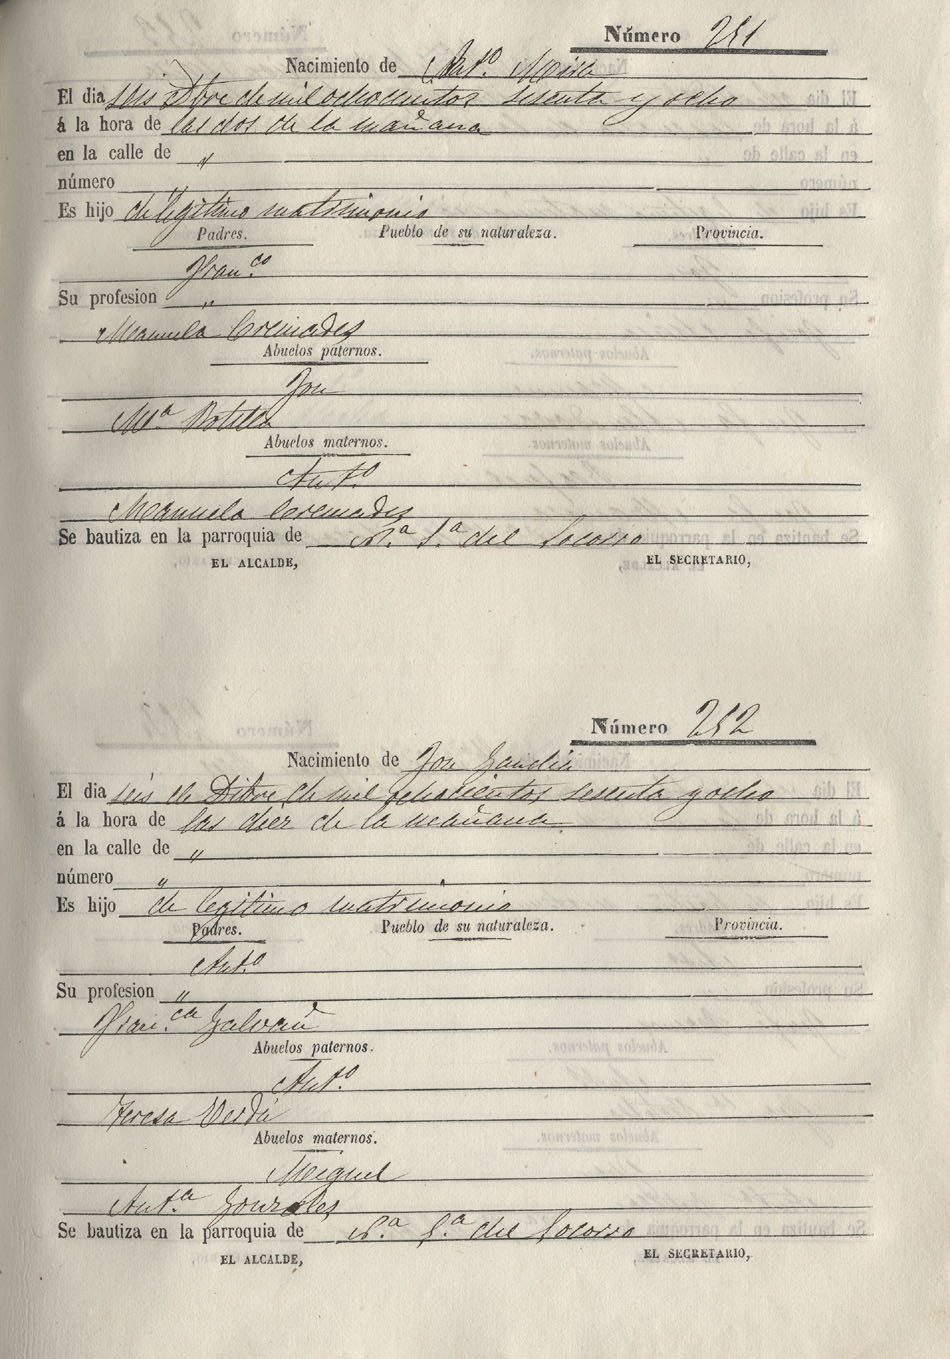 Número 251
Nacimiento de Ant.º Mira
El dia seis Dbre de mil ochocientos sesenta y ocho
á la hora de las dos de la mañana
en la calle de "
número
Es hijo de legitimo matrimonio
Padres. Pueblo de su naturaleza. Provincia.
Fran.co
Su profesion "
Manuela Cremades
Abuelos paternos.
Jose
M.a Botella
Abuelos maternos.
Ant.º
Manuela Cremades
Se bautiza en la parroquia de N.a S.a del Socorro
EL ALCALDE, EL SECRETARIO,
Número 252
Nacimiento de Jose
El dia seis de Dibre de mil ochocientos sesenta y ocho
á la hora de las diez de la mañana
en la calle de "
número "
Es hijo de legitimo matrimonio
Padres. Pueblo de su naturaleza. Provincia.
Ant.º
Su profesion "
Fran.ca Galvañ
Abuelos paternos.
Ant.º
Teresa Verdú
Abuelos maternos.
Miguel
Ant.a Gonzales
Se bautiza en la parroquia de N.a S.a del Socorro
EL ALCALDE, EL SECRETARIO,